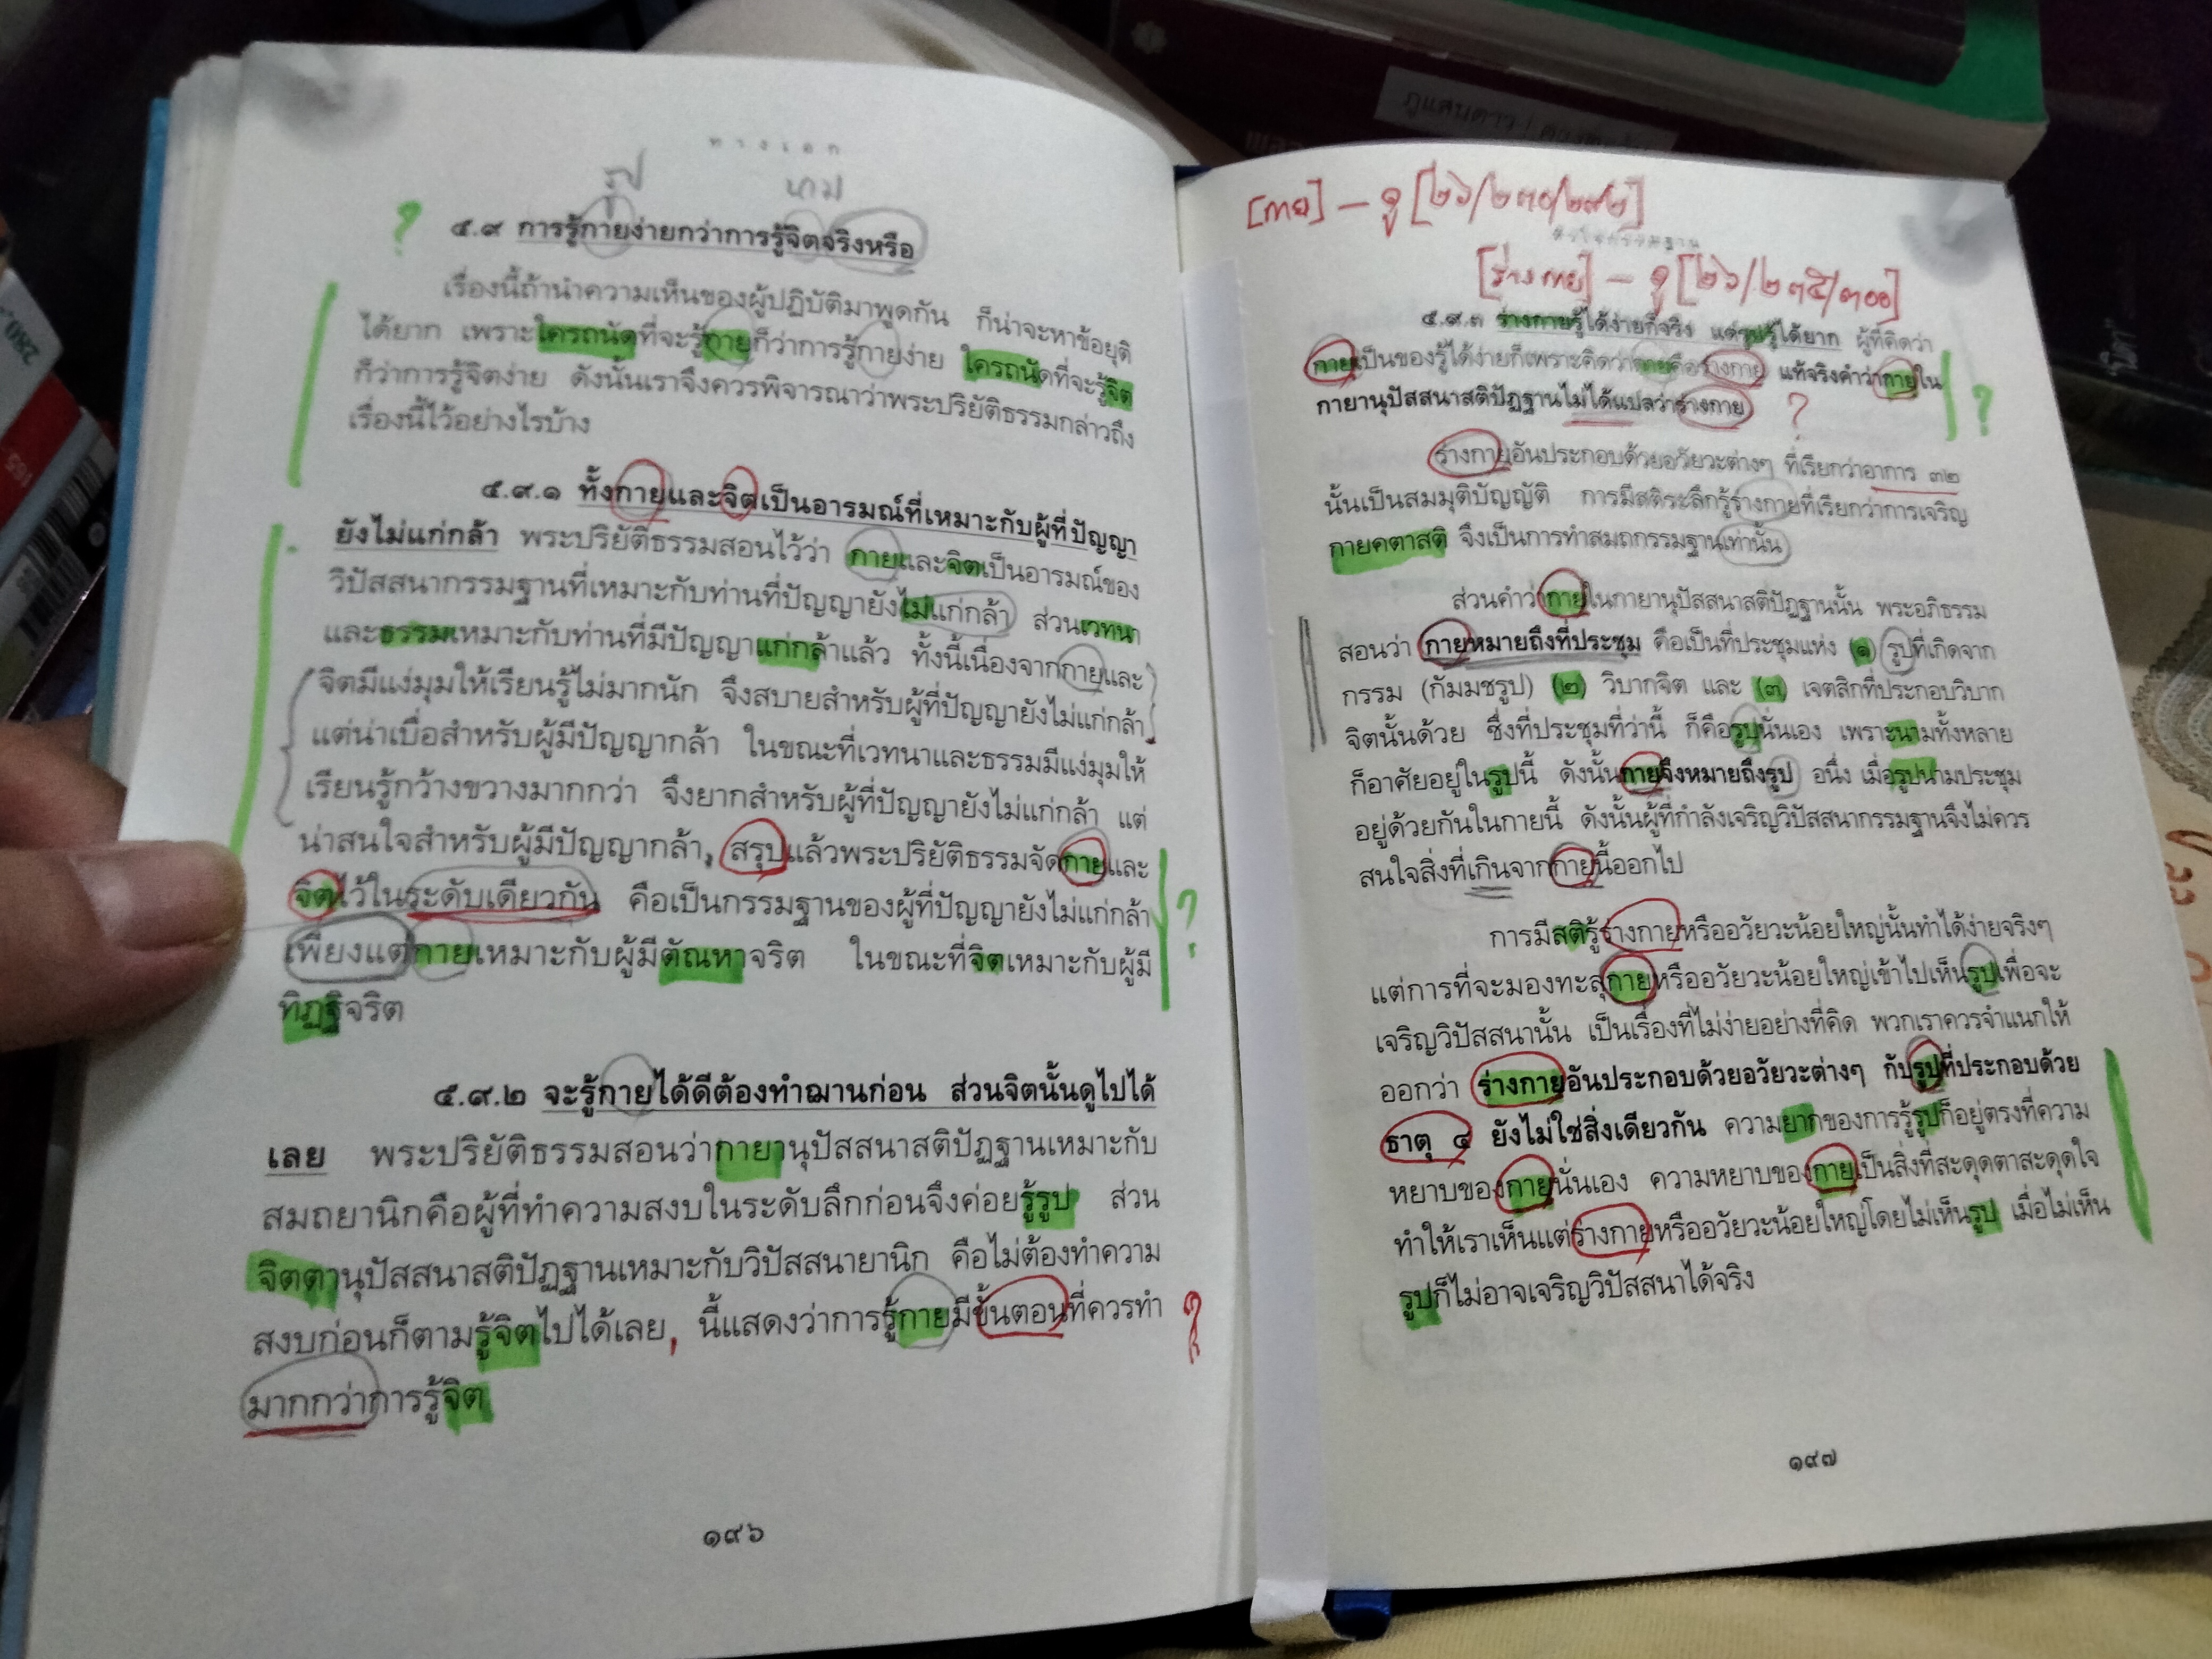 ทางเอก
รูป นาม
?
๕.๙ การรู้กายง่ายกว่าการรู้จิตจริงหรือ
เรื่องนี้ถ้านำความเห็นของผู้ปฏิบัติมาพูดกัน ก็น่าจะหาข้อยุติ
ได้ยาก เพราะใครถนัดที่จะรู้กายก็ว่าการรู้กายง่าย ใครถนัดที่จะรู้จิต
ก็ว่าการรู้จิตง่าย ดังนั้นเราจึงควรพิจารณาว่าพระปริยัติธรรมกล่าวถึง
เรื่องนี้ไว้อย่างไรบ้าง
๕.๙.๑ ทั้งกายและจิตเป็นอารมณ์ที่เหมาะกับผู้ที่ปัญญา
ยังไม่แก่กล้า พระปริยัติธรรมสอนไว้ว่า กายและจิตเป็นอารมณ์ของ
วิปัสสนากรรมฐานที่เหมาะกับท่านที่ปัญญายังไม่แก่กล้า ส่วนเวทนา
และธรรมเหมาะกับท่านที่มีปัญญาแก่กล้าแล้ว ทั้งนี้เนื่องจากกายและ
จิตมีแง่มุมให้เรียนรู้ไม่มากนัก จึงสบายสำหรับผู้ที่ปัญญายังไม่แก่กล้า
แต่น่าเบื่อสำหรับผู้มีปัญญากล้า ในขณะที่เวทนาและธรรมมีแง่มุมให้
เรียนรู้กว้างขวางมากกว่า จึงยากสำหรับผู้ที่ปัญญายังไม่แก่กล้า แต่
น่าสนใจสำหรับผู้มีปัญญากล้า, สรุปแล้วพระปริยัติธรรมจัดกายและ
จิตไว้ในระดับเดียวกัน คือเป็นกรรมฐานของผู้ที่ปัญญายังไม่แก่กล้า ?
เพียงแต่กายเหมาะกับผู้มีตัณหาจริต ในขณะที่จิตเหมาะกับผู้มี
ทิฏฐิจริต
๕.๙.๒ จะรู้กายได้ดีต้องทำฌานก่อน ส่วนจิตนั้นดูไปได้
เลย พระปริยัติธรรมสอนว่ากายานุปัสสนาสติปัฏฐานเหมาะกับ
สมถยานิกคือผู้ที่ทำความสงบในระดับลึกก่อนจึงค่อยรู้รูป ส่วน
จิตตานุปัสสนาสติปัฏฐานเหมาะกับวิปัสสนายานิก คือไม่ต้องทำความ
สงบก่อนก็ตามรู้จิตไปได้เลย, นี้แสดงว่าการรู้กายมีขั้นตอนที่ควรทำ ?
มากกว่าการรู้จิต
๑๙๖
[กาย] – ดู [๒๖/๒๓๐/๒๙๒]
[ร่างกาย] – ดู [๒๖/๒๓๕/๓๐๐]
๕.๙.๓ ร่างกายรู้ได้ง่ายก็จริง แต่รูปรู้ได้ยาก ผู้ที่คิดว่า
กายเป็นของรู้ได้ง่ายก็เพราะคิดว่ากายคือร่างกาย แท้จริงคำว่ากายใน
กายานุปัสสนาสติปัฏฐานไม่ได้แปลว่าร่างกาย ? ?
ร่างกายอันประกอบด้วยอวัยวะต่างๆ ที่เรียกว่าอาการ ๓๒
นั้นเป็นสมมุติบัญญัติ การมีสติระลึกรู้ร่างกายที่เรียกว่าการเจริญ
กายคตาสติ จึงเป็นการทำสมถกรรมฐานเท่านั้น
ส่วนคำว่ากายในกายานุปัสสนาสติปัฏฐานนั้น พระอภิธรรม
สอนว่า กายหมายถึงที่ประชุม คือเป็นที่ประชุมแห่ง (๑) รูปที่เกิดจาก
กรรม (กัมมชรูป) (๒) วิบากจิต และ (๓) เจตสิกที่ประกอบวิบาก
จิตนั้นด้วย ซึ่งที่ประชุมที่ว่านี้ ก็คือรูปนั่นเอง เพราะนามทั้งหลาย
ก็อาศัยอยู่ในรูปนี้ ดังนั้นกายจึงหมายถึงรูป อนึ่ง เมื่อรูปนามประชุม
อยู่ด้วยกันในกายนี้ ดังนั้นผู้ที่กำลังเจริญวิปัสสนากรรมฐานจึงไม่ควร
สนใจสิ่งที่เกินจากกายนี้ออกไป
การมีสติรู้ร่างกายหรืออวัยวะน้อยใหญ่นั้นทำได้ง่ายจริงๆ
แต่การที่จะมองทะลุกายหรืออวัยวะน้อยใหญ่เข้าไปเห็นรูปเพื่อจะ
เจริญวิปัสสนานั้น เป็นเรื่องที่ไม่ง่ายอย่างที่คิด พวกเราควรจำแนกให้
ออกว่า ร่างกายอันประกอบด้วยอวัยวะต่างๆ กับรูปที่ประกอบด้วย
ธาตุ ๔ ยังไม่ใช่สิ่งเดียวกัน ความยากของการรู้รูปก็อยู่ตรงที่ความ
หยาบของกายนั่นเอง ความหยาบของกายเป็นสิ่งที่สะดุดตาสะดุดใจ
ทำให้เราเห็นแต่ร่างกายหรืออวัยวะน้อยใหญ่โดยไม่เห็นรูป เมื่อไม่เห็น
รูปก็ไม่อาจเจริญวิปัสสนาได้จริง
๑๙๗